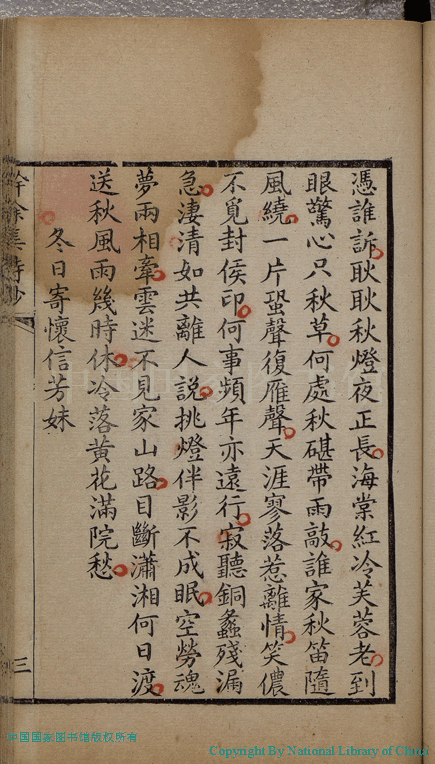 憑誰訴耿耿秋燈夜正長海棠紅冷芙蓉老到
眼驚心只秋草何處秋碪帶雨敲誰家秋笛隨
風繞一片蛩聲復雁聲天涯寥落惹離情笑儂
不覓封侯印何事頻年亦遠行寂聽銅蠡殘漏
急淒清如共離人說挑燈伴影不成眠空勞魂
夢雨相牽雲迷不見家山路目斷瀟湘何日渡
送秋風雨幾時休冷落黃花滿院愁
冬日寄懷信芳妹
餘集詩鈔
三
中国国家图书馆版权所有
Copyright By National Library of China